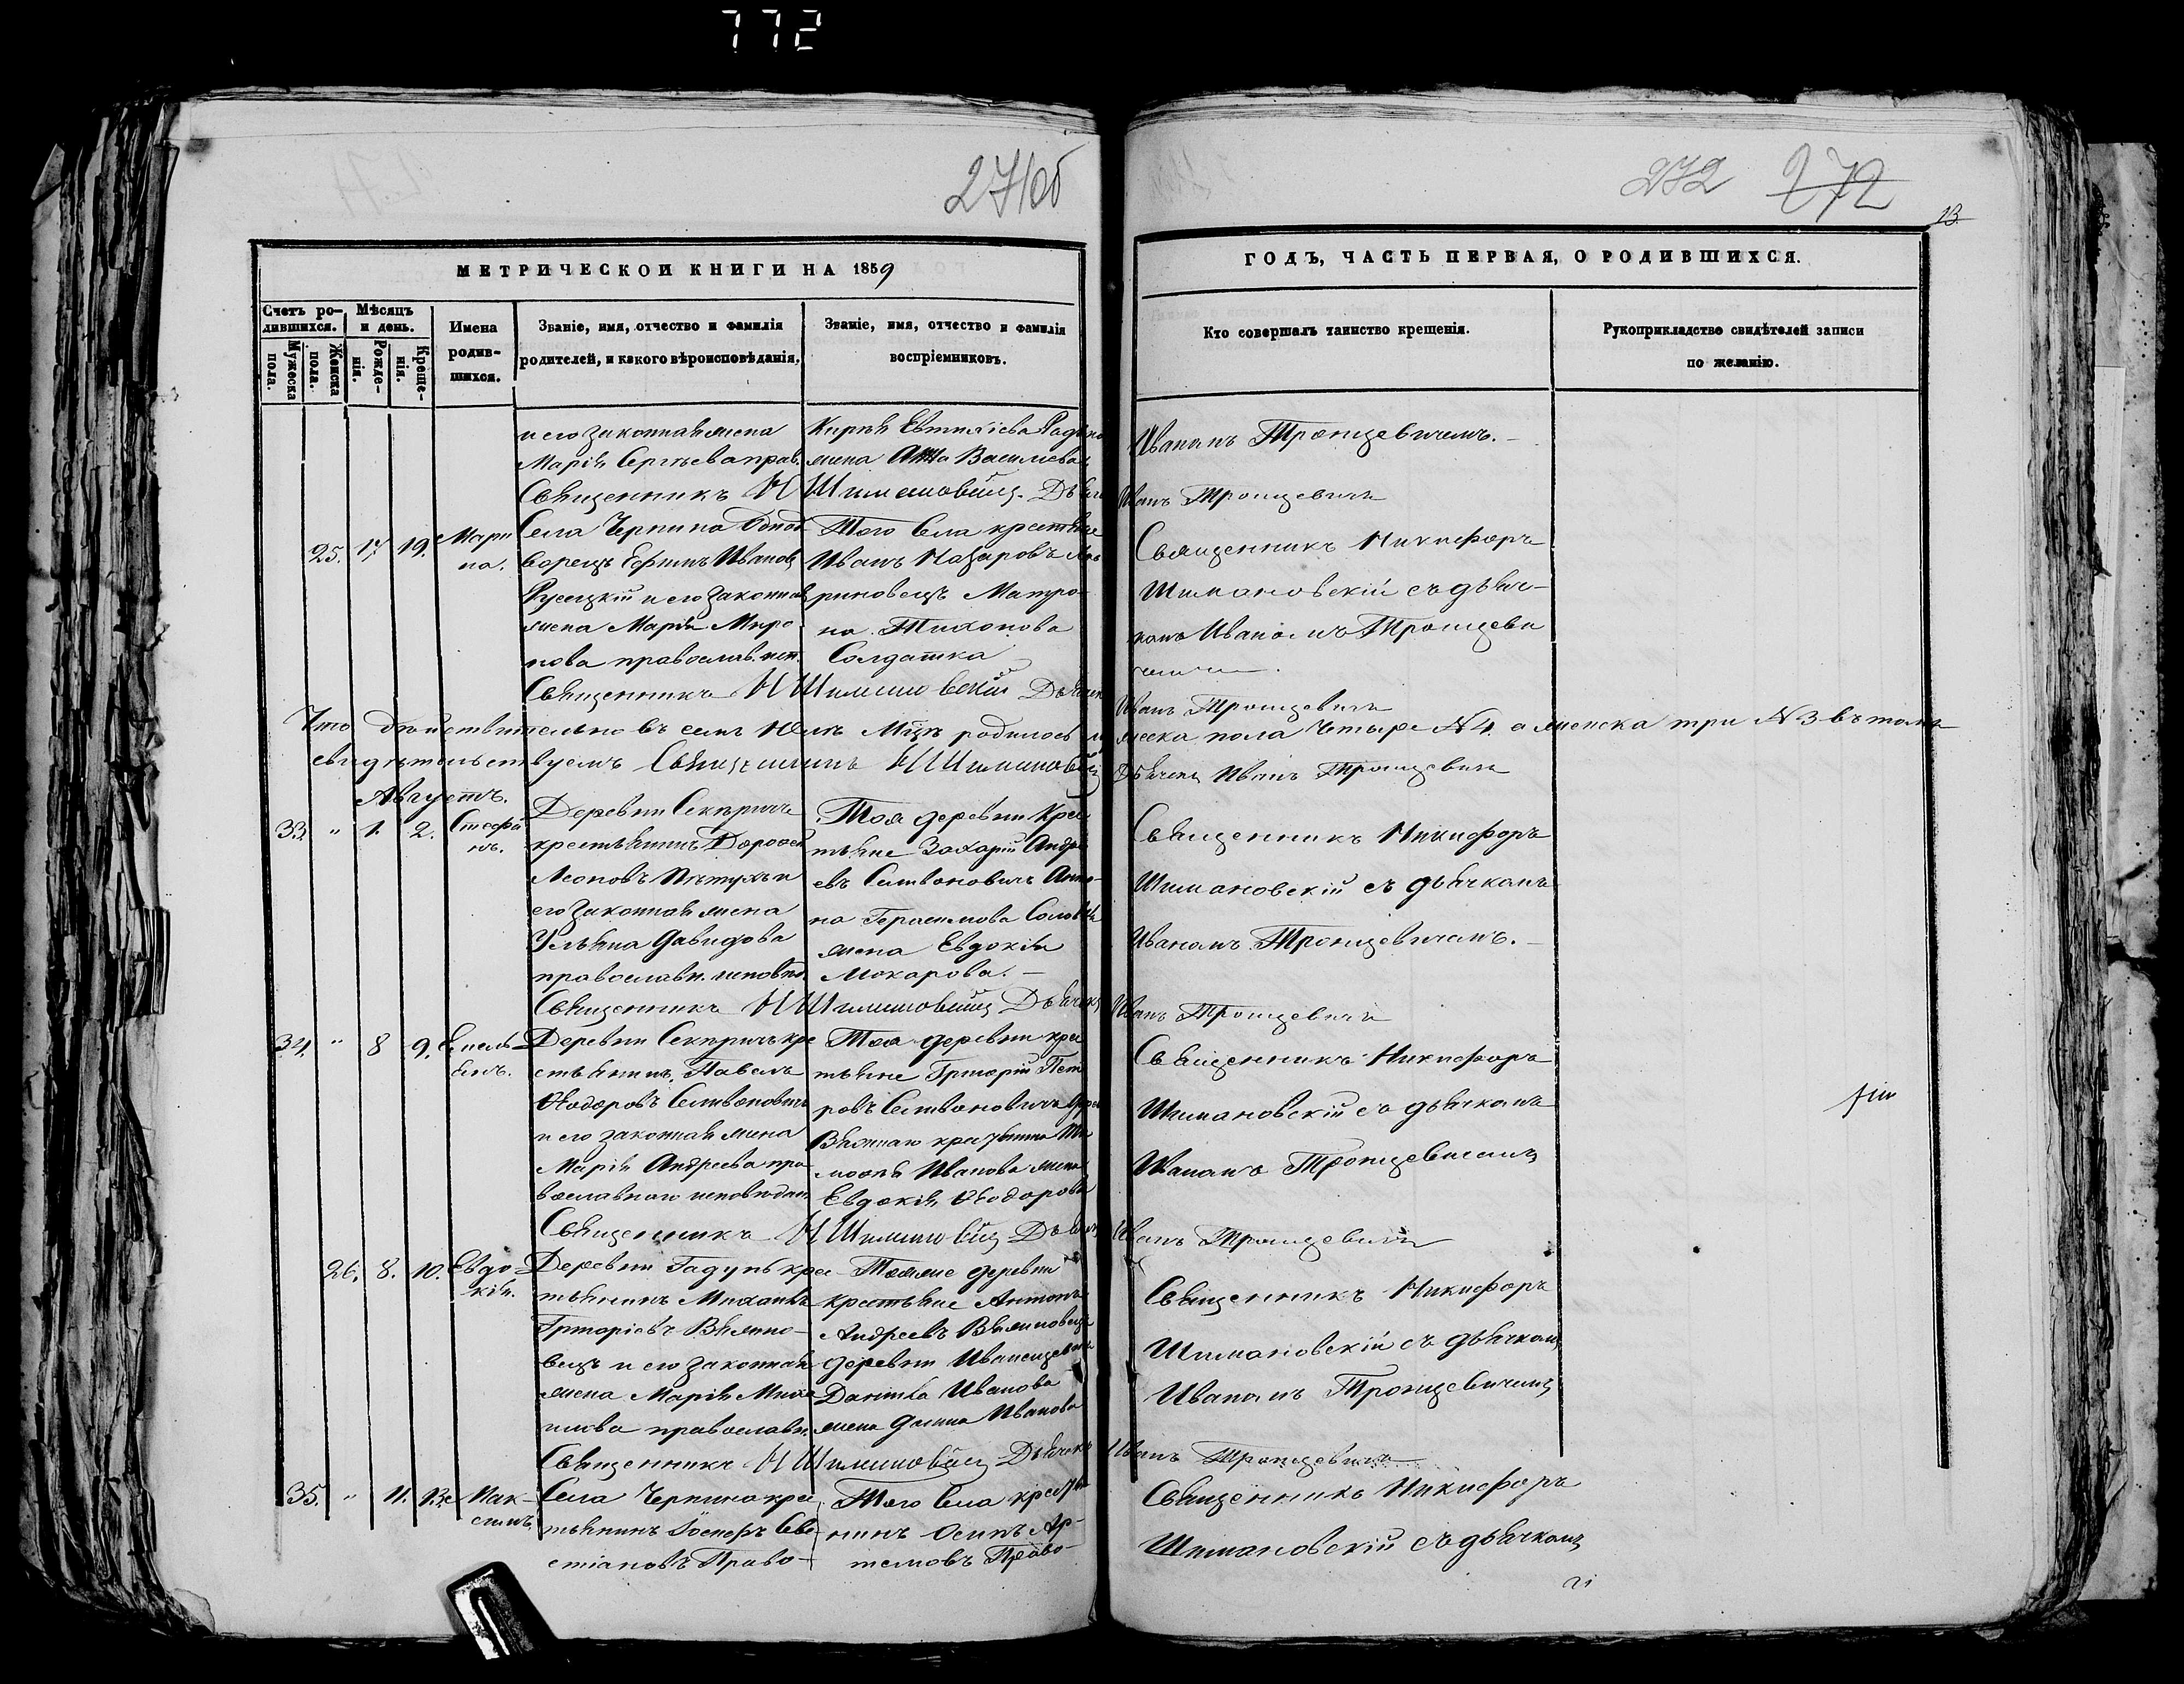 772
271об
272 272
13
МЕТРИЧЕСКОЙ КНИГИ НА 1859
ГОДЪ, ЧАСТЬ ПЕРВАЯ, О РОДИВШИХСЯ.
Счетъ ро-
дившихся.
Мужеска пола.
Женска пола.
Мѣсяцъ
и день.
Рожде-
нія.
Креще-
нія.
Имена
родив-
шихся.
Званіе, имя, отчество и фамилія
родителей, и какого вѣроисповѣданія.
Званіе, имя, отчество и фамилія
воспріемниковъ.
Кто совершалъ таинство крещенія.
Рукоприкладство свидѣтелей записи
по желанію.
и его законная жена
Марія Сергѣева прав.
Евтихіева
жена Анна Василіева
Иваномъ Троицевичемъ.
Священникъ Н Шимановскій. Дьячекъ Иванъ Троицевичъ
25. 17 19. Мари
на.
Села Чернина Однод
ворецъ Ефимъ Ивановъ
Русецкій и его законная
жена Марія Миро
нова православ. исп.
Того села крестьяне
Иванъ Назаровъ
Матро
на Тихонова
Солдатка
Священникъ Никифоръ
Шимановскій съ дьяч-
комъ Иваномъ Троицеви
чемъ.
Священникъ Н Шимановскій Дьячекъ Иванъ Троицевичъ
Что дѣйствительно въ семъ Юлѣ Мцѣ родилось мужеска пола четыре N 4. а женска три N 3 въ томъ
свидѣтельствуемъ Священникъ Н Шимановскій Дьячекъ Иванъ Троицевичъ
Августъ.
33. " 1. 2. Стефа
нъ.
Деревни Секиричъ
крестьянинъ Дорофей
Леоновъ Пѣтухъ и
его законная жена
Ульяна Давидова
православн. исповѣд.
Тоя деревни крес
тьяне Захарій Андре
евъ Селивоновичъ
Герасимова
жена Евдокія
Макарова.
Священникъ Никифоръ
Шимановскій съ дьячкомъ
Иваномъ Троицевичемъ.
Священникъ Н Шимановскій Дьячекъ Иванъ Троицевичъ
34. " 8 9. Емель
янъ.
Деревни Секиричъ кре
стьянинъ Павелъ
Ѳеодоровъ Селивоновичъ
и его законная жена
Марія Андреева пра
вославнаго исповѣдан.
Тоя деревни крес
тьяне Григорій Пет
ровъ Селивоновичъ
Ти
моѳѣя Иванова жена
Евдокія Ѳеодорова
Священникъ Никифоръ
Шимановскій съ дьячкомъ
Иваномъ Троицевичемъ
Священникъ Н Шимановскій Дьячекъ Иванъ Троицевичъ
26. 8. 10. Евдо
кія.
Деревни Гадунь крес
тьянинъ Михаилъ
Григоріевъ Вяжно-
вецъ и его законная
жена Марія Миха
илова православн.
Тояже деревни
крестьяне Антонъ
Андреевъ Вяжновецъ
деревни
Даніила Иванова
жена Иванова
Священникъ Никифоръ
Шимановскій съ дьячкомъ
Иваномъ Троицевичемъ
Священникъ Н Шимановскій Дьячекъ Иванъ Троицевичъ
35. " 11. 13. Мак-
симъ.
Села Чернина крес
тьянинъ Іосифъ Сева
стіановъ Право-
Того села кресть
нинъ Осипъ Ар-
темовъ Право-
Священникъ Никифоръ
Шимановскій съ дьячкомъ